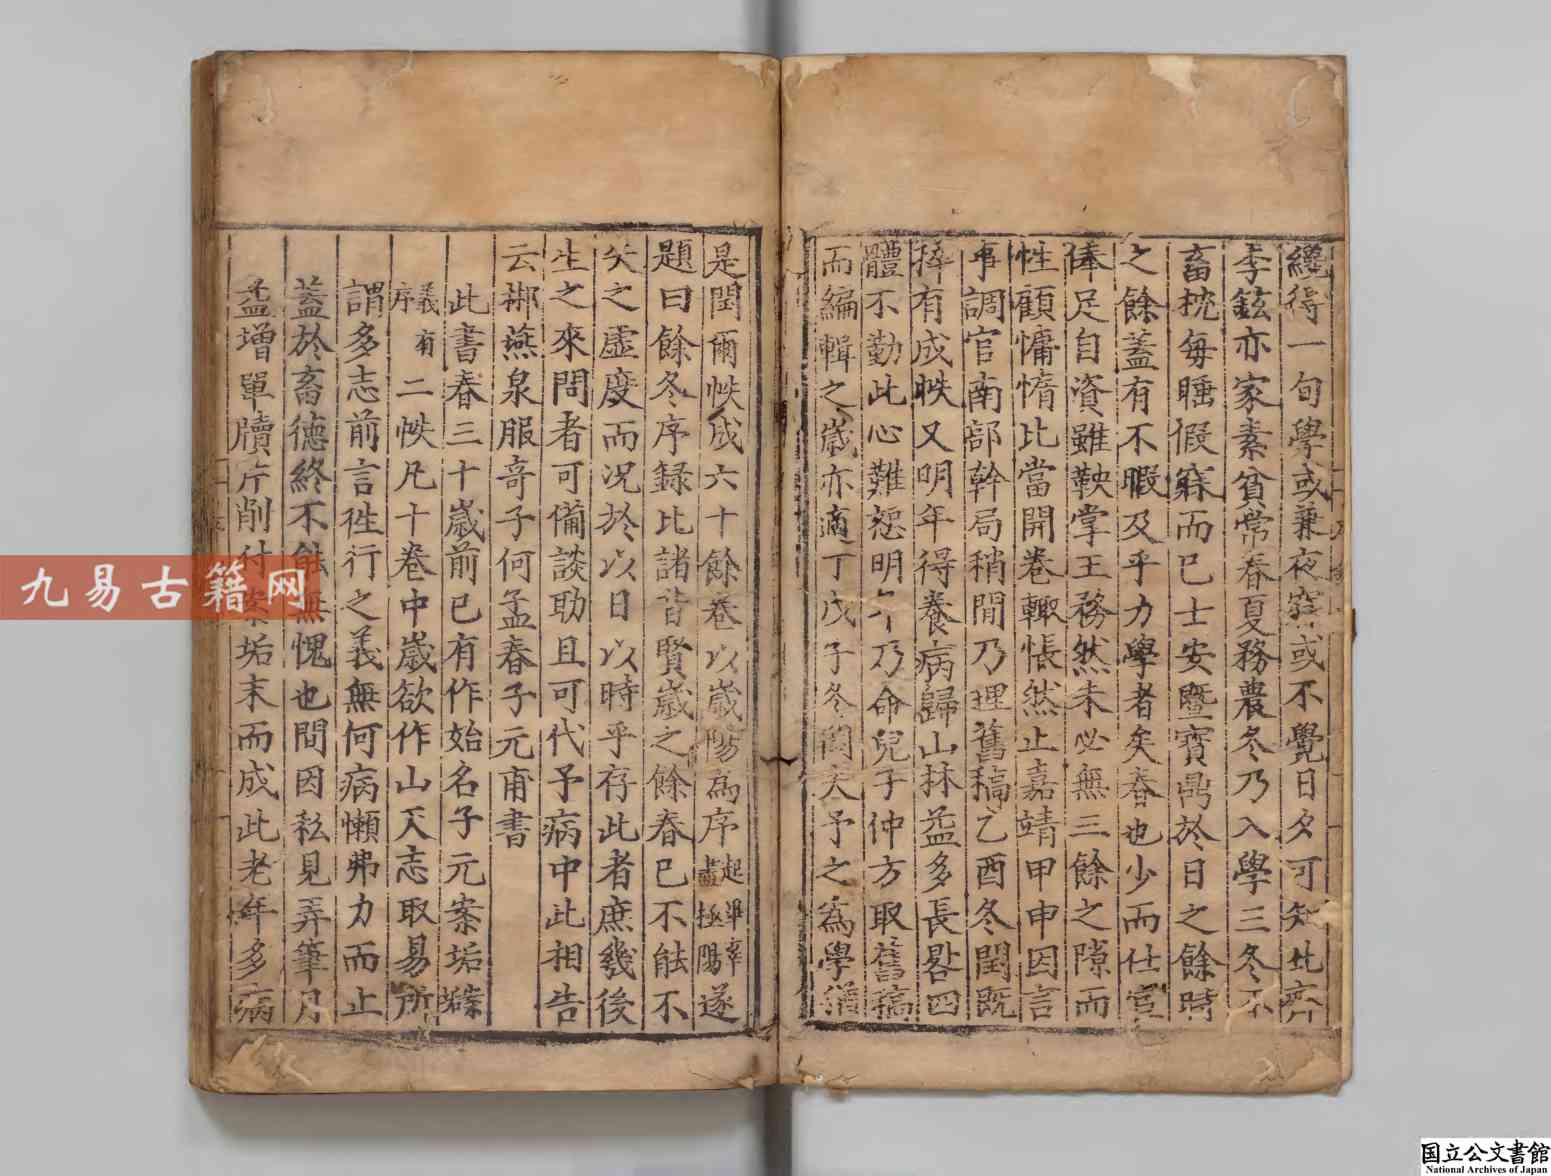 纔得一句學或兼夜窮或不覺日夕可知北齊
李鉉亦家素貧常春夏務農冬乃入學三冬不
畜枕每睡假寐而已士安暨寶鼎於日之餘時
之餘蓋有不暇及乎力學者矣春也少而仕宦
俸足自資雖鞅掌王務然未必無三餘之隙而
性顧慵惰比當開卷輙悵然止嘉靖甲申因言
事調官南部幹局稍閒乃理舊稿乙酉冬閏既
擇有成帙又明年得養病歸山抹益多長畧四
體不勤此心難恝明年乃命兒子仲方取舊稿
而編輯之歲亦適丁戊子冬閏夫予之為學猶
是閏爾帙成六十餘卷以歲陽為序起畢辜盡極陽遂
題曰餘冬序録比諸昔賢歲之餘春已不能不
失之虛度而況於以日以時乎存此者庶幾後
生之來問者可備談助且可代予病中此相告
云郴燕泉服奇子何孟春子元甫書
此書春三十歲前已有作始名子元案垢樣
序義有二帙凡十卷中歲欲作山天志取易所
謂多志前言徃行之義無何病懶弗力而止
蓋於畜德終不能無愧也間因私見弄筆月
孟增單牘片削付案垢末而成此老年多病
九易古籍网
国立公文書館
National Archives of Japan